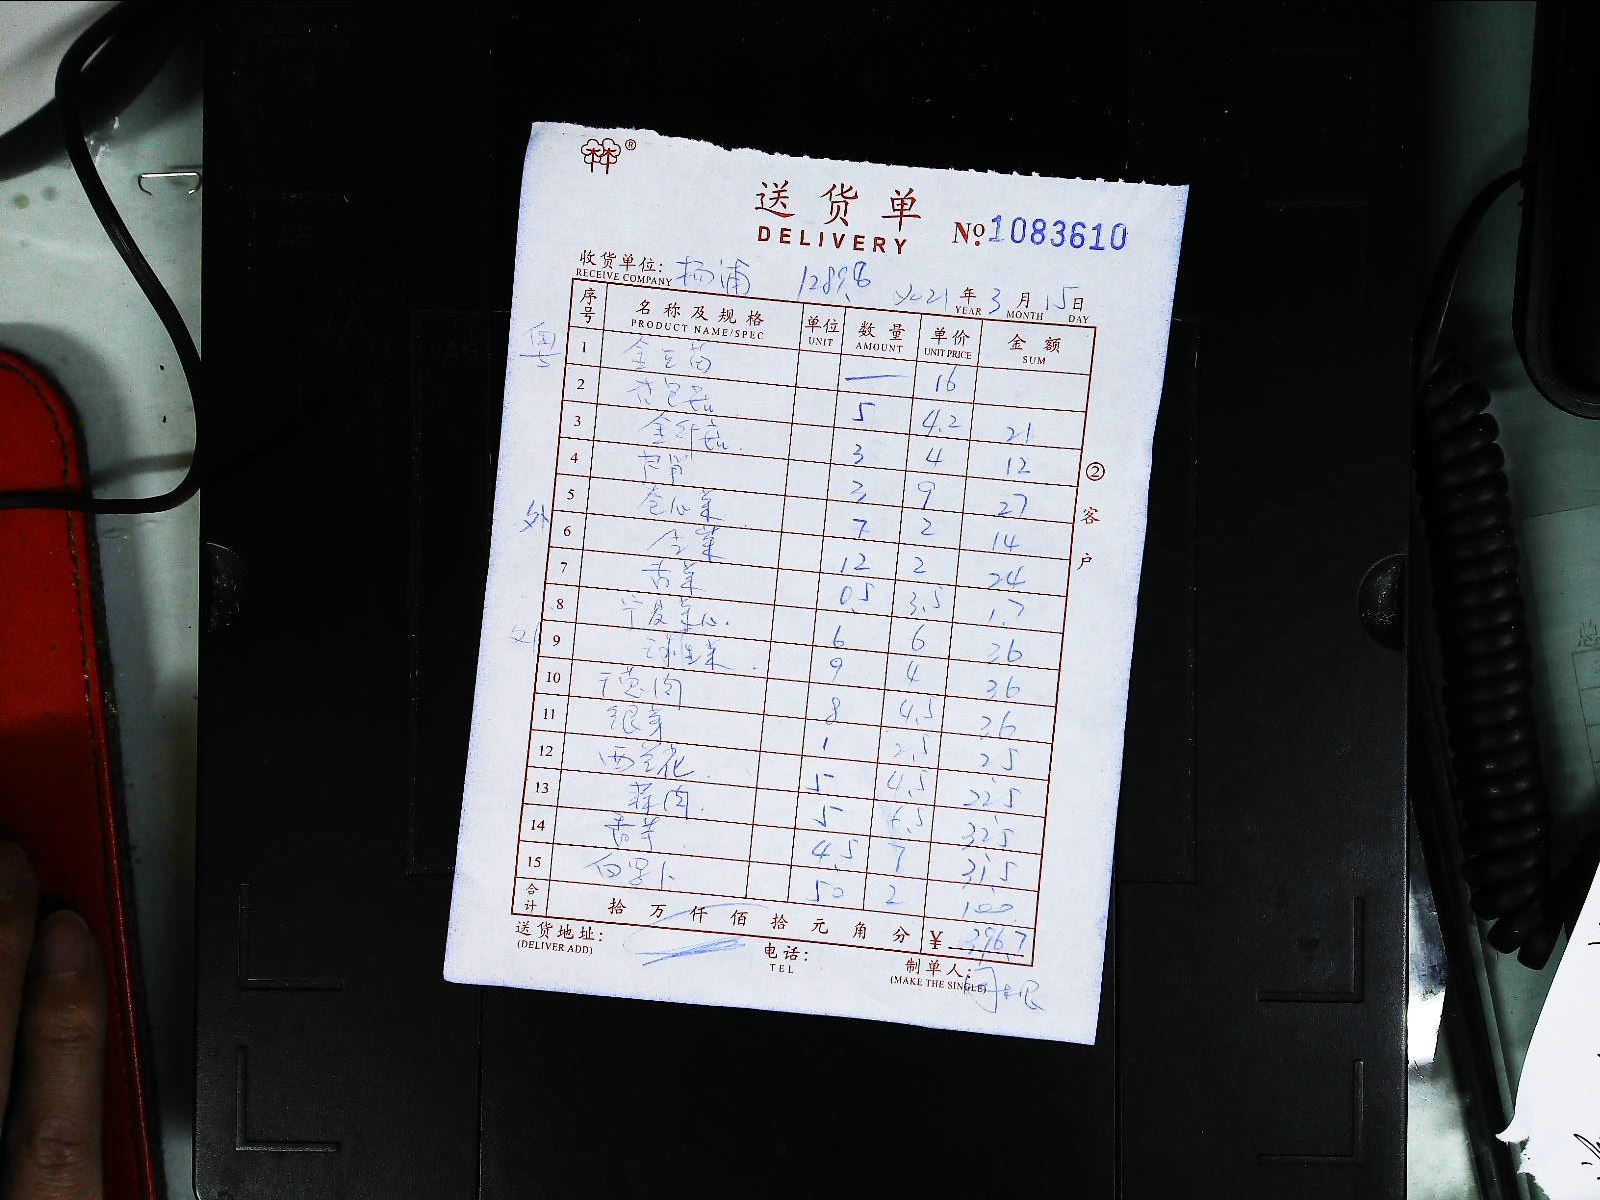 ®
送货单
DELIVERY
№ 1083610
收货单位: 杨浦 1289.8 2021 年 3 月 15 日
RECEIVE COMPANY YEAR MONTH DAY
序号 名称及规格 单位 数量 单价 金额
PRODUCT NAME/SPEC UNIT AMOUNT UNIT PRICE SUM
粤 1 金豆苗 — 16
2 杏包菇 5 4.2 21
3 金针菇 3 4 12
4 3 9 27
5 卷心菜 7 2 14
外 6 菜 12 2 24
7 香菜 0.5 3.5 1.7
8 宁夏菜心 6 6 36
9 球生菜 9 4 36
10 干葱肉 8 4.5 36
11 银芽 1 2.5 2.5
12 西兰花 5 4.5 22.5
13 蒜肉 5 6.5 32.5
14 香芋 4.5 7 31.5
15 白罗卜 50 2 100
合计 拾万仟佰拾元角分 ¥ 396.7
送货地址: 电话: 制单人:
(DELIVER ADD) TEL (MAKE THE SINGLE)
② 客户